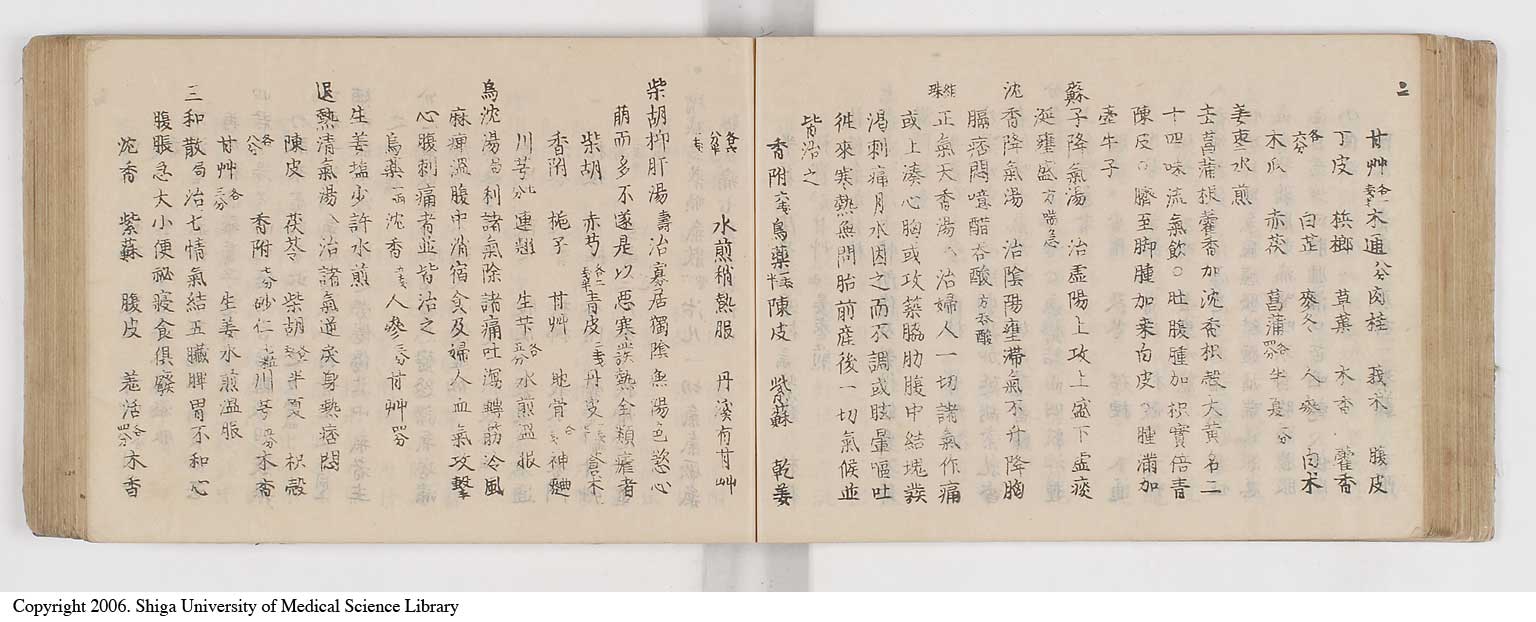 甘艸 各一 木通 肉桂 莪朮 腹皮
丁皮 梹榔 草菓 木香 藿香
各 白芷 麥冬 人參 白朮
木瓜 赤茯 菖蒲 各 半夏
姜棗水煎
去菖蒲根藿香加沈香枳殻大黄名二
十四味流氣飲○肚腹腫加枳實倍青
陳皮○臍至脚腫加桒白皮○腫満加
牽牛子
蘇子降氣湯 治虚陽上攻上盛下虚痰
涎壅盛 方喘急
沈香降氣湯 治陰陽壅滞氣不升降胸
膈痞悶噫醋吞酸 方吞酸
正氣天香湯 治婦人一切諸氣作痛
或上凑心胸或攻築脇肋腹中結塊發
渇刺痛月水因之而不調或眩暈嘔吐
徃來寒熱無問胎前産後一切氣候並
皆治之
香附 烏藥 陳皮 紫蘇 乾姜
各 水煎稍熱服 丹溪有甘艸
柴胡抑肝湯 壽 治寡居獨陰無陽色慾心
萌而多不遂是以悪寒發熱全類瘧者
柴胡 赤芍 青皮 丹皮 蒼朮
香附 梔子 甘艸 地骨 神麯
川芎 連翹 生芐 各五分 水煎温服
烏沈湯 局 利諸氣除諸痛吐瀉轉筋冷風
麻痺温腹中消宿食及婦人血氣攻撃
心腹刺痛者並皆治之
烏藥 一両 沈香 人參 三分 甘艸 四分
生姜塩少許水煎
退熱清氣湯 治諸氣逆灾身熱痞悶
陳皮 茯苓 柴胡 半夏 枳殻
各 香附 七分 砂仁 七粒 川芎 五分 木香
甘艸 各三分 生姜水煎温服
三和散 局 治七情氣結五臓脾胃不和心
腹脹急大小便秘寝食俱廢
沈香 紫蘇 腹皮 羌活 各四分 木香
Copyright 2006. Shiga University of Medical Science Library